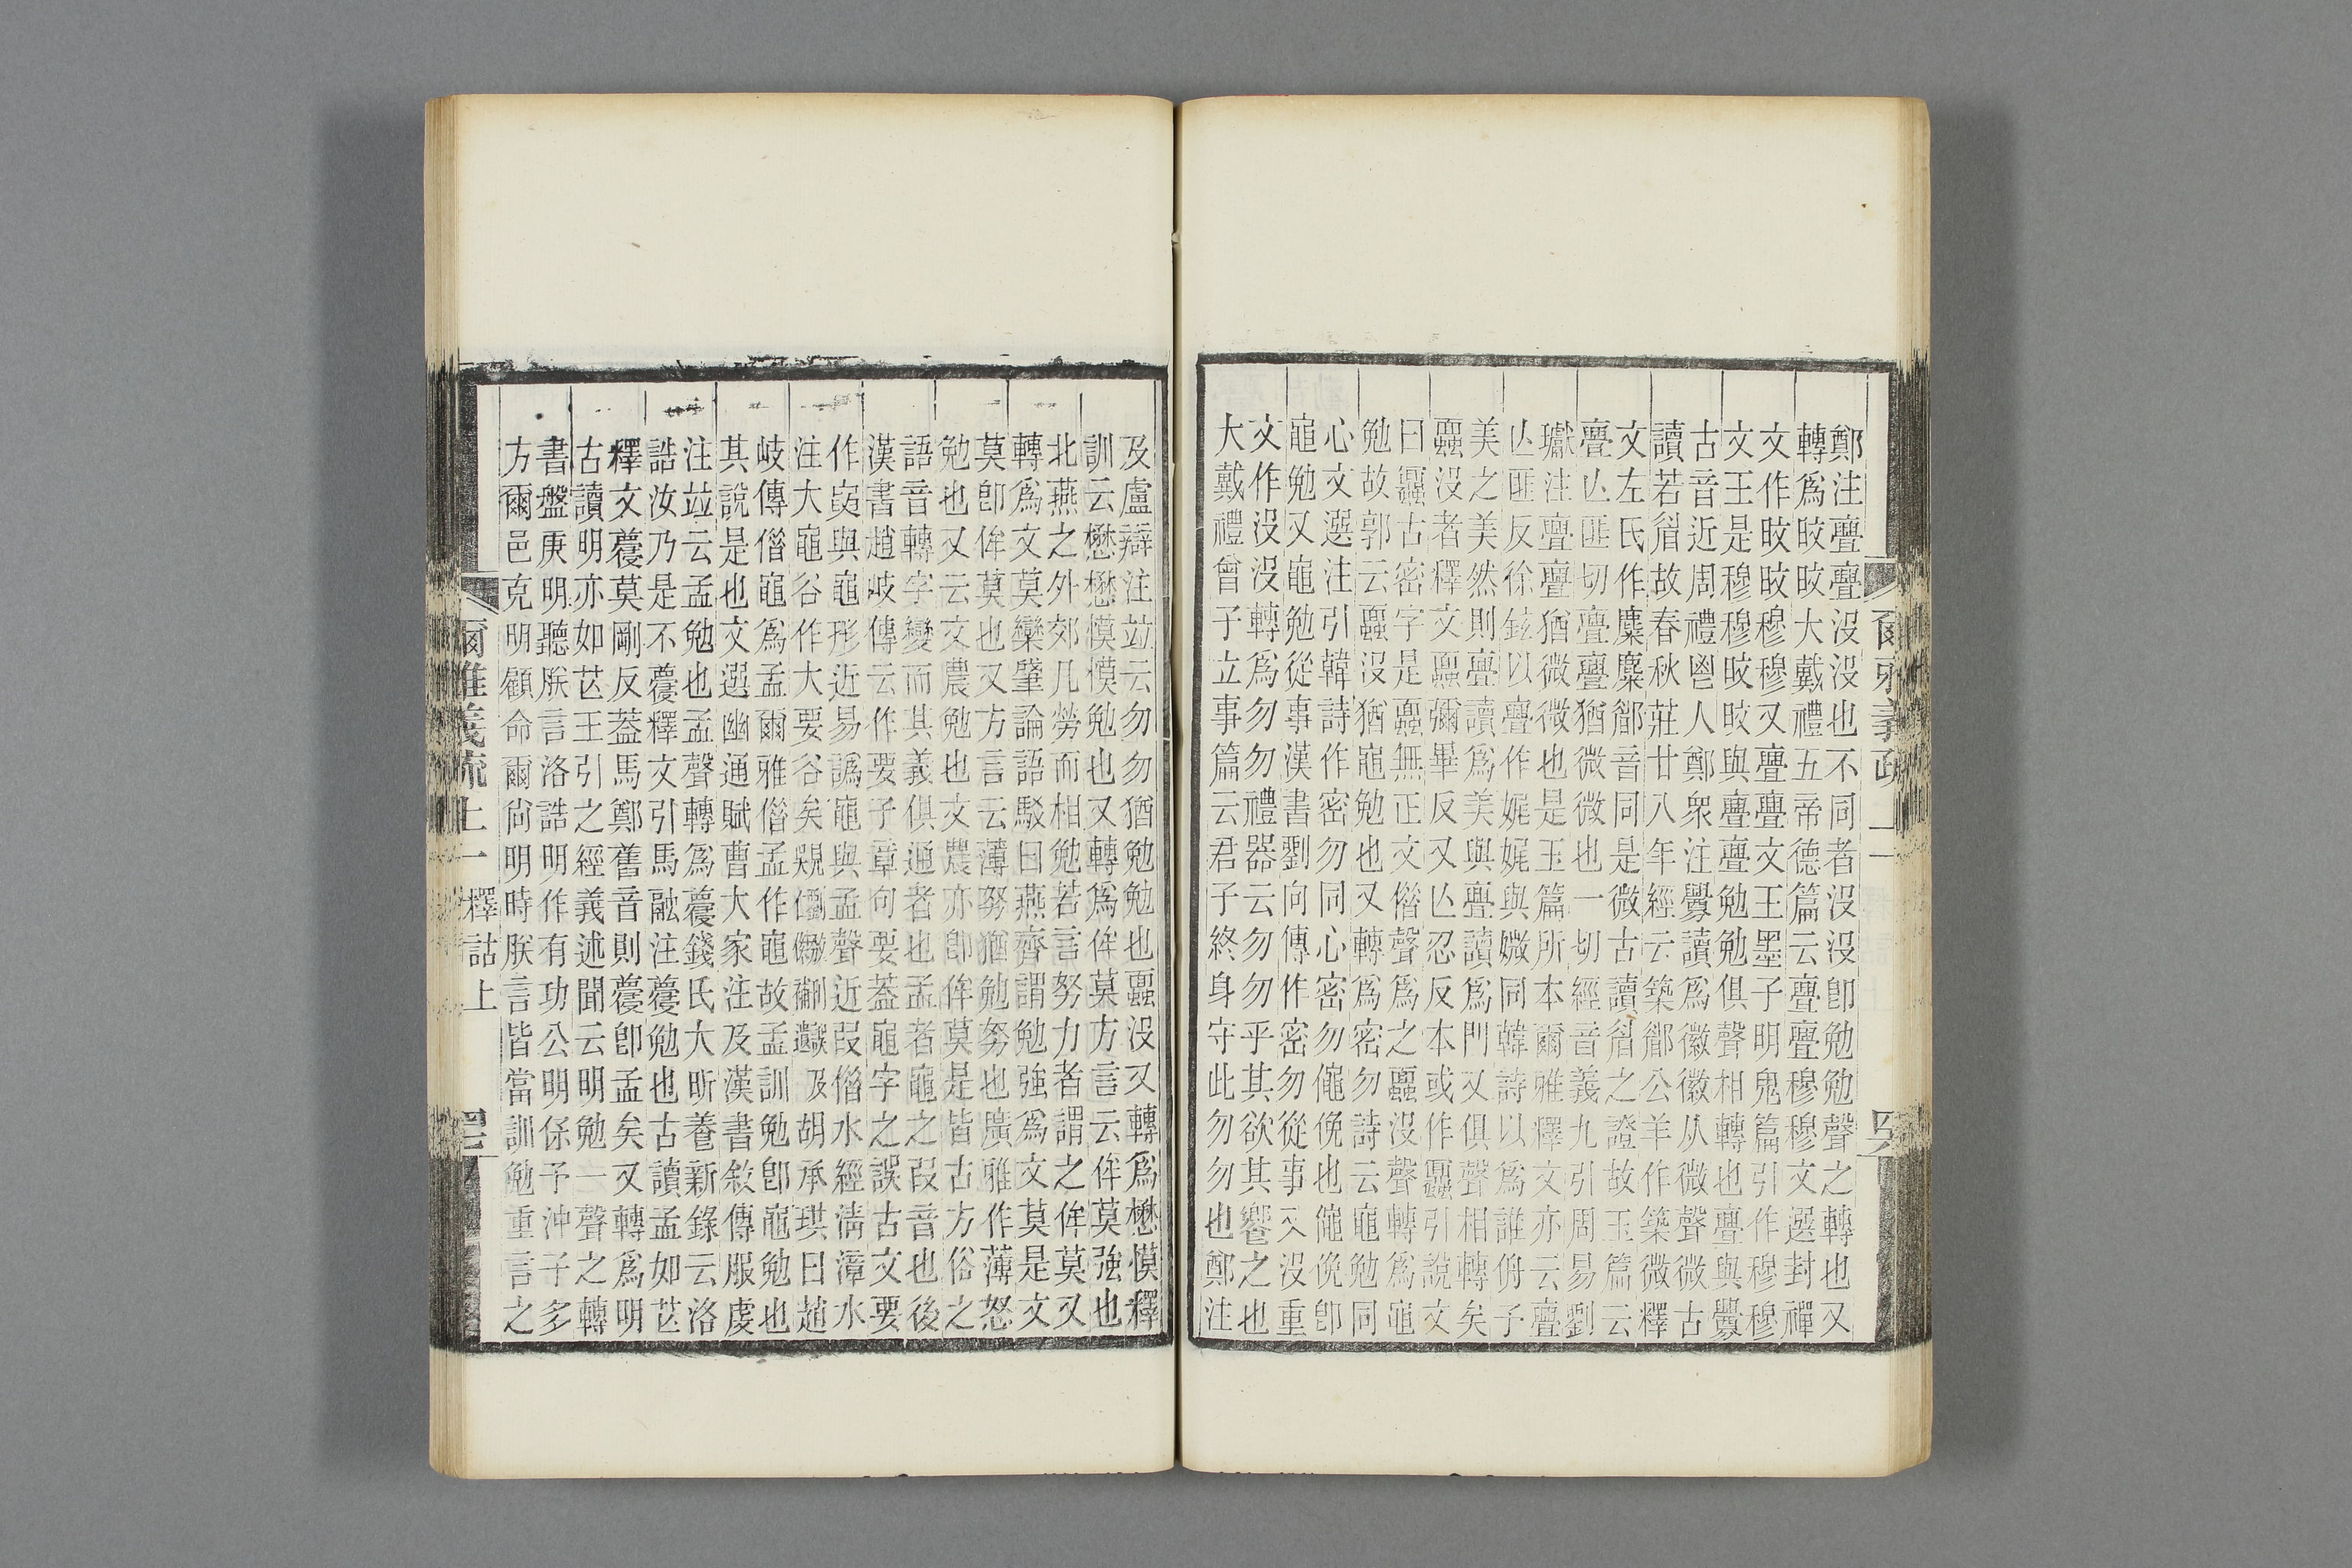 鄭注亹亹没没也不同者没没卽勉勉聲之轉也又
轉爲㫚㫚大戴禮五帝德篇云亹亹穆穆文選封禪
文作㫚㫚穆穆又亹亹文王墨子明鬼篇引作穆穆
文王是穆穆㫚㫚與亹亹勉勉俱聲相轉也亹與釁
古音近周禮鬯人鄭衆注釁讀爲徽徽从微聲微古
讀若眉故春秋莊廿八年經云築郿公羊作築微釋
文左氏作麋麋郿音同是微古讀眉之證故玉篇云
亹亾匪切亹亹猶微微也一切經音義九引周易劉
瓛注亹亹猶微微也是玉篇所本爾雅釋文亦云亹
亾匪反徐鉉以亹作娓娓與媺同韓詩以爲誰侜予
美之美然則亹讀爲美與亹讀爲門又俱聲相轉矣
蠠没者釋文蠠彌畢反又亾忍反本或作𧖅引說文
曰𧖅古密字是蠠無正文偕聲爲之蠠没聲轉爲黽
勉故郭云蠠没猶黽勉也又轉爲密勿詩云黽勉同
心文選注引韓詩作密勿同心密勿僶俛也僶俛卽
黽勉又黽勉從事漢書劉向傳作密勿從事又没重
文作没没轉爲勿勿禮器云勿勿乎其欲其饗之也
大戴禮曾子立事篇云君子終身守此勿勿也鄭注
爾雅義疏 上一
及盧辯注竝云勿勿猶勉勉也蠠没又轉爲懋慔釋
訓云懋懋慔慔勉也又轉爲侔莫方言云侔莫強也
北燕之外郊凡勞而相勉若言努力者謂之侔莫又
轉爲文莫欒肇論語駁曰燕齊謂勉強爲文莫是文
莫卽侔莫也又方言云薄努猶勉努也廣雅作薄怒
勉也又云文農勉也文農亦卽侔莫是皆古方俗之
語音轉字變而其義俱通者也孟者黽之叚音也後
漢書趙岐傳云作要子章句要葢黽字之誤古文要
作㚻與黽形近易譌黽與孟聲近叚偕水經淸漳水
注大黽谷作大要谷矣
岐傳偕黽爲孟爾雅偕孟作黽故孟訓勉卽黽勉也
其說是也文選幽通賦曹大家注及漢書敘傳服虔
注竝云孟勉也孟聲轉爲𧄼錢氏大昕養新錄云洛
誥汝乃是不𧄼釋文引馬融注𧄼勉也古讀孟如芒
釋文𧄼莫剛反葢馬鄭舊音則𧄼卽孟矣又轉爲明
古讀明亦如芒王引之經義述聞云明勉一聲之轉
書盤庚明聽朕言洛誥明作有功公明保予沖子多
方爾邑克明顧命爾尙明時朕言皆當訓勉重言之
爾雅義疏上一 釋詁上